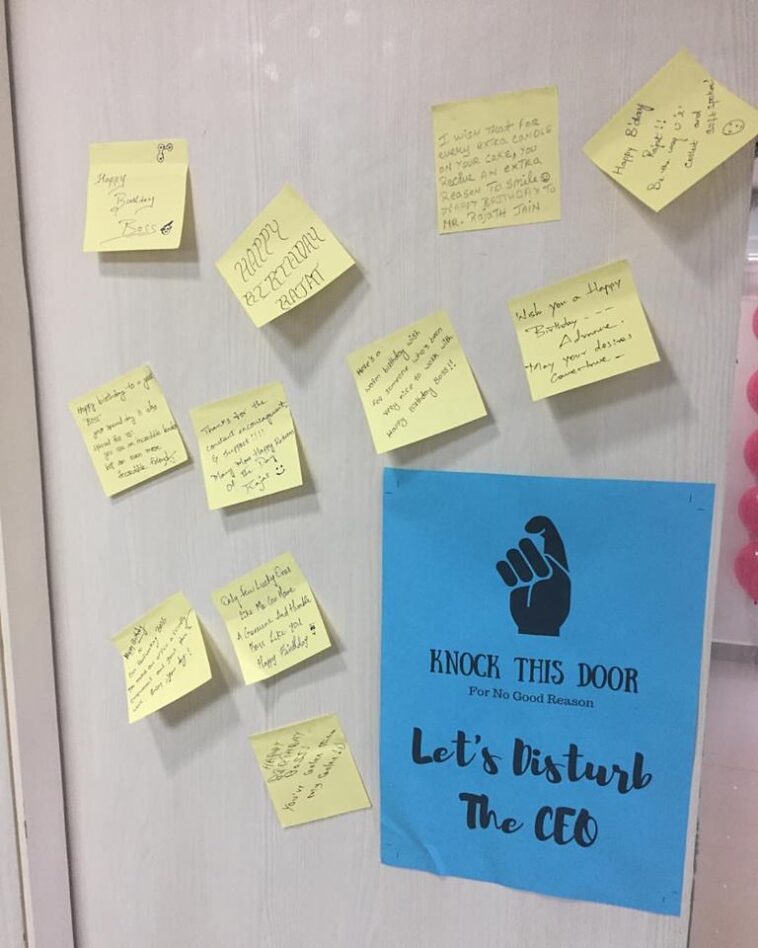 Happy
Birthday
Boss
HAPPY
BIRTHDAY
RAJAT
I WISH THAT FOR
EVERY EXTRA CANDLE
ON YOUR CAKE, YOU
RECIVE AN EXTRA
REASON TO SMILE
HAPPY BRITHDAY TO
MR. RAJATH JAIN
Happy B'day
Rajat!!
Be the way U R
and
Soft spoken!
Wish you a Happy
Birthday ---
Admove.
May your desires
Come true -
Here's a
warm birthday wish
for someone who's been
very nice to work with
Happy Birthday Boss!!
Happy birthday to a great
"Boss"
your special day is also
special for us
you are an incredible leader
but an even more
incredible friend.
Thanks for the
constant encouragement
& support !!!!
Many More Happy Returns
Of the Day
Rajat
Happy Birthday
to
Our Boss
your day!
Only Few Lucky Ones
Like Me Can Have
A Genuine And Humble
Boss Like You
Happy Birthday!
HAPPY
BIRTHDAY
BOSS!
You've
My
KNOCK THIS DOOR
For No Good Reason
Let's Disturb
The CEO